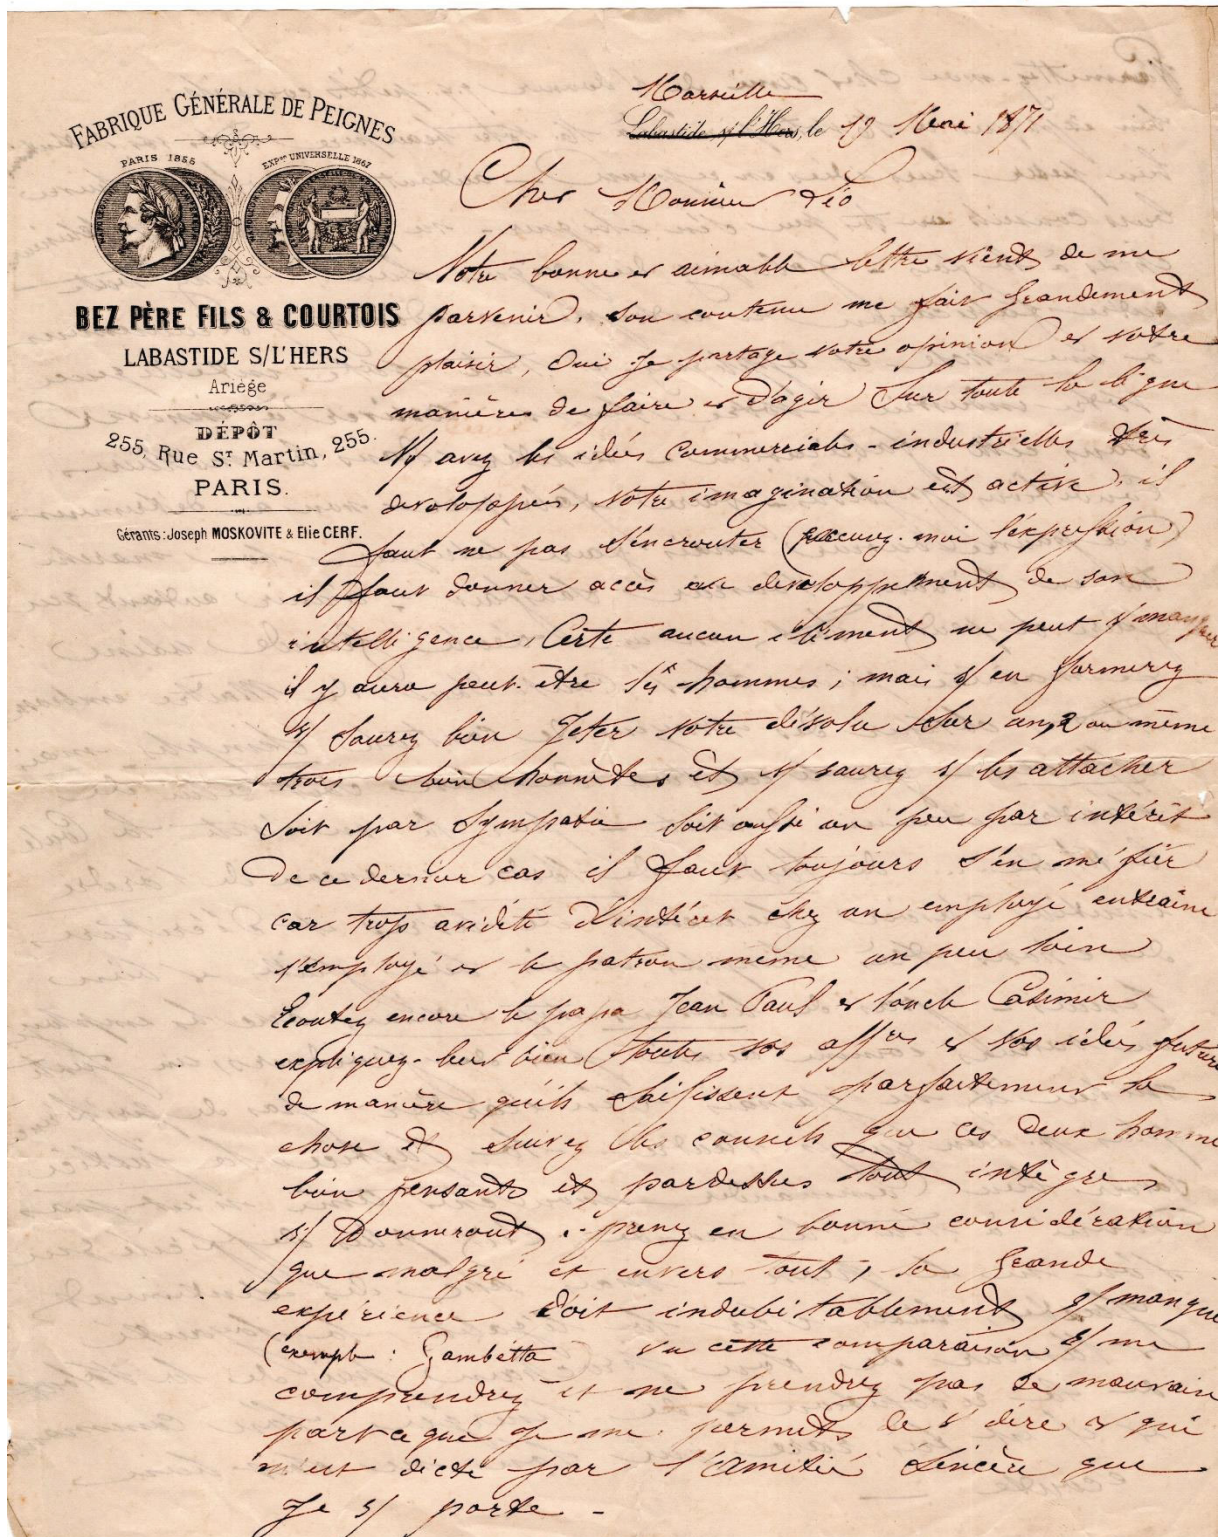 FABRIQUE GÉNÉRALE DE PEIGNES
PARIS 1855
EXP.on UNIVERSELLE 1867
BEZ PÈRE FILS & COURTOIS
LABASTIDE S/L'HERS
Ariège
DÉPÔT
255, Rue St Martin, 255.
PARIS.
Gérants: Joseph MOSKOVITE & Elie CERF.
Marseille
Labastide s/ l'Hers, le 19 Mai 1871
Cher Monsieur Léo
Votre bonne et aimable lettre vient de me
parvenir, son contenu me fait grandement
plaisir, Oui je partage votre opinion et votre
manières de faire et d'agir sur toute la ligne
V/ avez les idées commerciales - industrielles très
developpées, votre imagination est active, il
faut ne pas s'encrouter (excusez-moi l'expression)
il faut donner accès au developpement de son
intelligence, Certe aucun élément ne peut v/ manquer
il y aura peut-être les hommes ; mais v/ en formerez
v/ saurez bien jeter votre dévolu sur un, 2 ou même
trois bien honnêtes et v/ saurez v/ les attacher
soit par sympatie soit aussi un peu par intérêt
De ce dernier cas il faut toujours s'en méfier
car trop avidité d'intéret chez un employé entraîne
l'employé et le patron même un peu loin
Ecoutez encore le papa Jean Paul et l'oncle Casimir
expliquez-leur bien toutes vos affres et vos idées future
de manière qu'ils saisissent parfaitement la
chose et suivez les conseils que ces deux homme
bien pensants et pardessus tout intègre
v/ donneront : prenez en bonne considération
que malgré et envers tout, la grande
expérience doit indubitablement v/ manque
(exemple : Gambetta vu cette comparaison v/ me
comprendrez et ne prendrez pas de mauvaise
part ce que je me permets de v/ dire et qui
m'est dicté par l'amitié sincère que
je v/ porte -